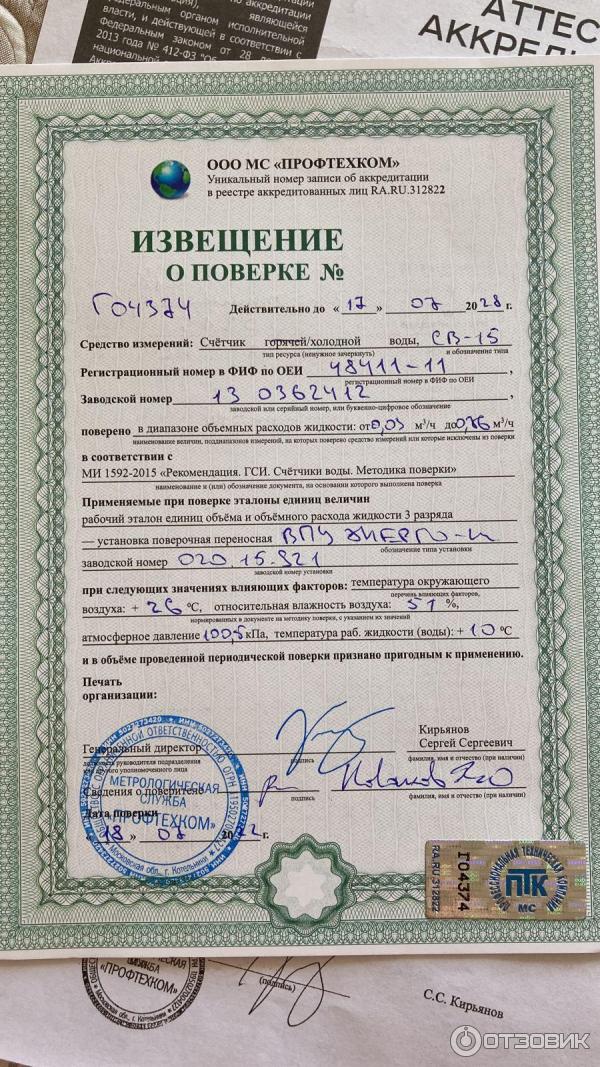 аккредитации
являющейся
федеральным органом исполнительной
власти, и действующей в соответствии с
Федеральным законом от 28
2013 года № 412-ФЗ "Об
национальной
АТТЕС
АККРЕД
ООО МС «ПРОФТЕХКОМ»
Уникальный номер записи об аккредитации
в реестре аккредитованных лиц RA.RU.312822
ИЗВЕЩЕНИЕ
О ПОВЕРКЕ №
Г04374 Действительно до «17» 07 2028 г.
Средство измерений: Счётчик горячей/холодной воды, СВ-15
тип ресурса (ненужное зачеркнуть) и обозначение типа
Регистрационный номер в ФИФ по ОЕИ 48411-11,
регистрационный номер в ФИФ по ОЕИ
Заводской номер 13 0362412,
заводской или серийный номер, или буквенно-цифровое обозначение
поверено в диапазоне объемных расходов жидкости: от 0,03 м³/ч до м³/ч
наименование величин, поддиапазонов измерений, на которых поверено средство измерений или которые исключены из поверки
в соответствии с
МИ 1592-2015 «Рекомендация. ГСИ. Счётчики воды. Методика поверки»
наименование и (или) обозначение документа, на основании которого выполнена поверка
Применяемые при поверке эталоны единиц величин
рабочий эталон единиц объёма и объёмного расхода жидкости 3 разряда
— установка поверочная переносная ВПУ ЭНЕРГО-М
обозначение типа установки
заводской номер 020.15.921
заводской номер установки
при следующих значениях влияющих факторов: температура окружающего
перечень влияющих факторов,
воздуха: + 26 °С, относительная влажность воздуха: 51 %,
нормированных в документе на методику поверки, с указанием их значений
атмосферное давление 100,5 кПа, температура раб. жидкости (воды): + 10 °С
и в объёме проведенной периодической поверки признано пригодным к применению.
Печать
организации:
Генеральный директор
Кирьянов
Сергей Сергеевич
должность руководителя подразделения
или другого уполномоченного лица
подпись
фамилия, имя и отчество (при наличии)
Сведения о поверителе
подпись
фамилия, имя и отчество (при наличии)
Дата поверки
«18» 07 2022г.
МЕТРОЛОГИЧЕСКАЯ
СЛУЖБА
"ПРОФТЕХКОМ"
Московская обл., г. Котельники
ПРОФЕССИОНАЛЬНАЯ ТЕХНИЧЕСКАЯ КОМПАНИЯ
ПТК
МС
RA.RU.312822
Г04374
СЛУЖБА
"ПРОФТЕХКОМ"
Московская обл., г. Котельники
(подпись)
С.С. Кирьянов
ОТЗОВИК